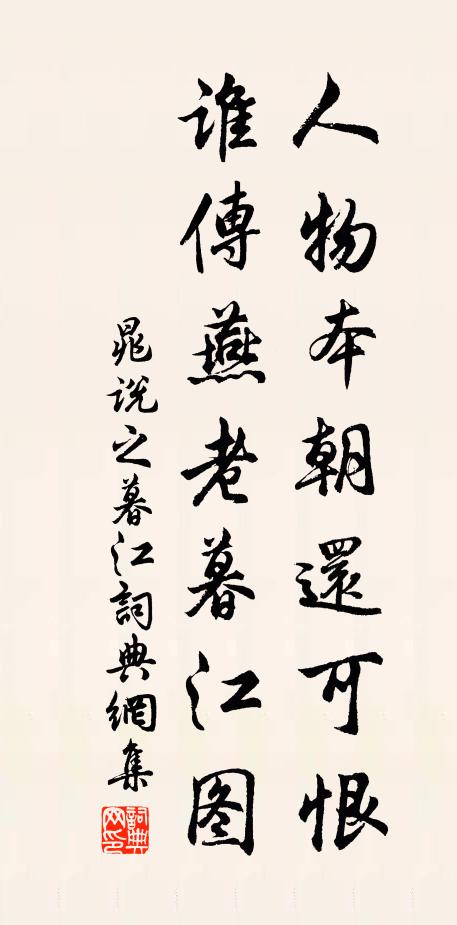 人物本朝還可恨
誰傳燕老暮江图
晁説之暮江詞典網集
詞典網印